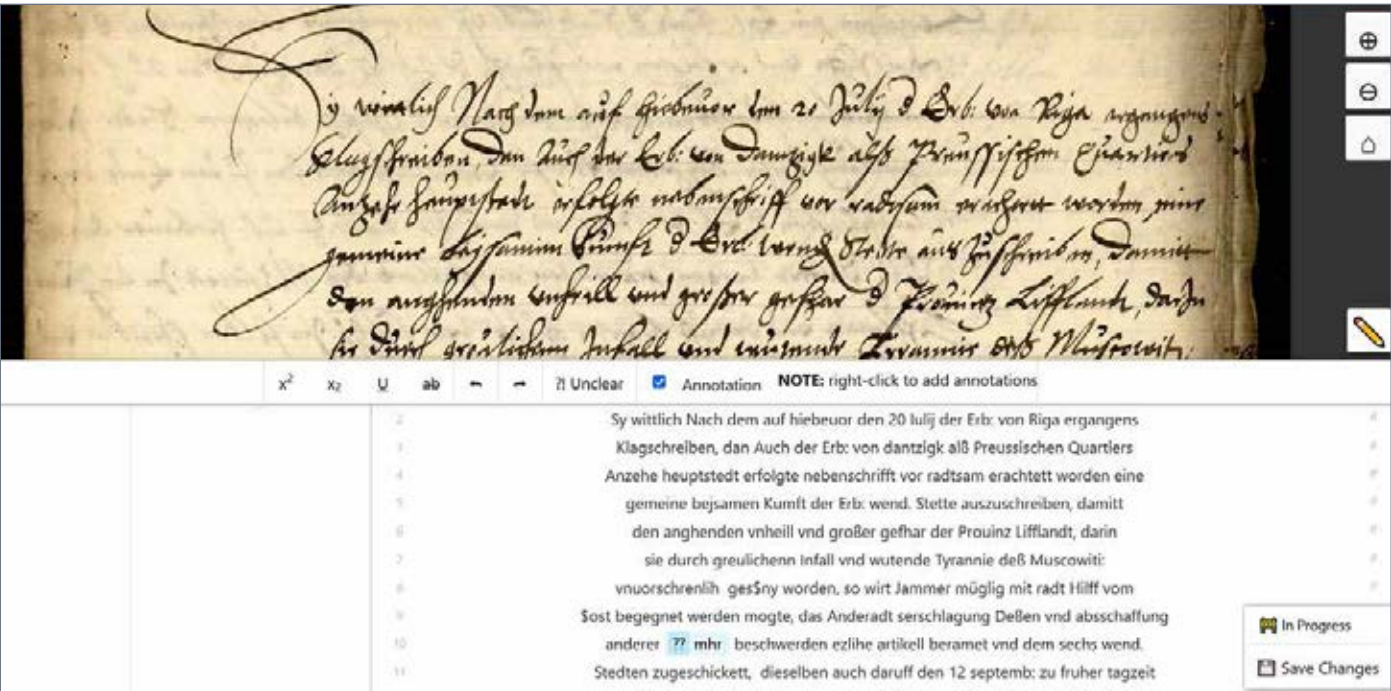 Sy wittlich Nach dem auf hiebeuor den 20 July d Erb: von Riga ergangens
Klagschreiben, dan Auch der Erb: von Dantzigk alß Preussischen Quartiers
Anzehe heuptstedt erfolgte nebenschrifft vor radtsam erachtett worden eine
gemeine bejsamen Kumft d Erb: wend. Stette auszuschreiben, damitt
den anghenden vnheill vnd großer gefhar d Prouintz Lifflandt, darin
sie durch greulichenn Infall vnd wutende Tyrannie deß Muscowiti:
x² x₂ U ab ?! Unclear Annotation NOTE: right-click to add annotations
2 Sy wittlich Nach dem auf hiebeuor den 20 Iulij der Erb: von Riga ergangens
3 Klagschreiben, dan Auch der Erb: von dantzigk alß Preussischen Quartiers
4 Anzehe heuptstedt erfolgte nebenschrifft vor radtsam erachtett worden eine
5 gemeine bejsamen Kumft der Erb: wend. Stette auszuschreiben, damitt
6 den anghenden vnheill vnd großer gefhar der Prouinz Lifflandt, darin
7 sie durch greulichenn Infall vnd wutende Tyrannie deß Muscowiti:
8 vnuorschrenlih ges$ny worden, so wirt Jammer müglig mit radt Hilff vom
9 $ost begegnet werden mogte, das Anderadt serschlagung Deßen vnd absschaffung
10 anderer ?? mhr beschwerden ezlihe artikell beramet vnd dem sechs wend.
11 Stedten zugeschickett, dieselben auch daruff den 12 septemb: zu fruher tagzeit
In Progress
Save Changes